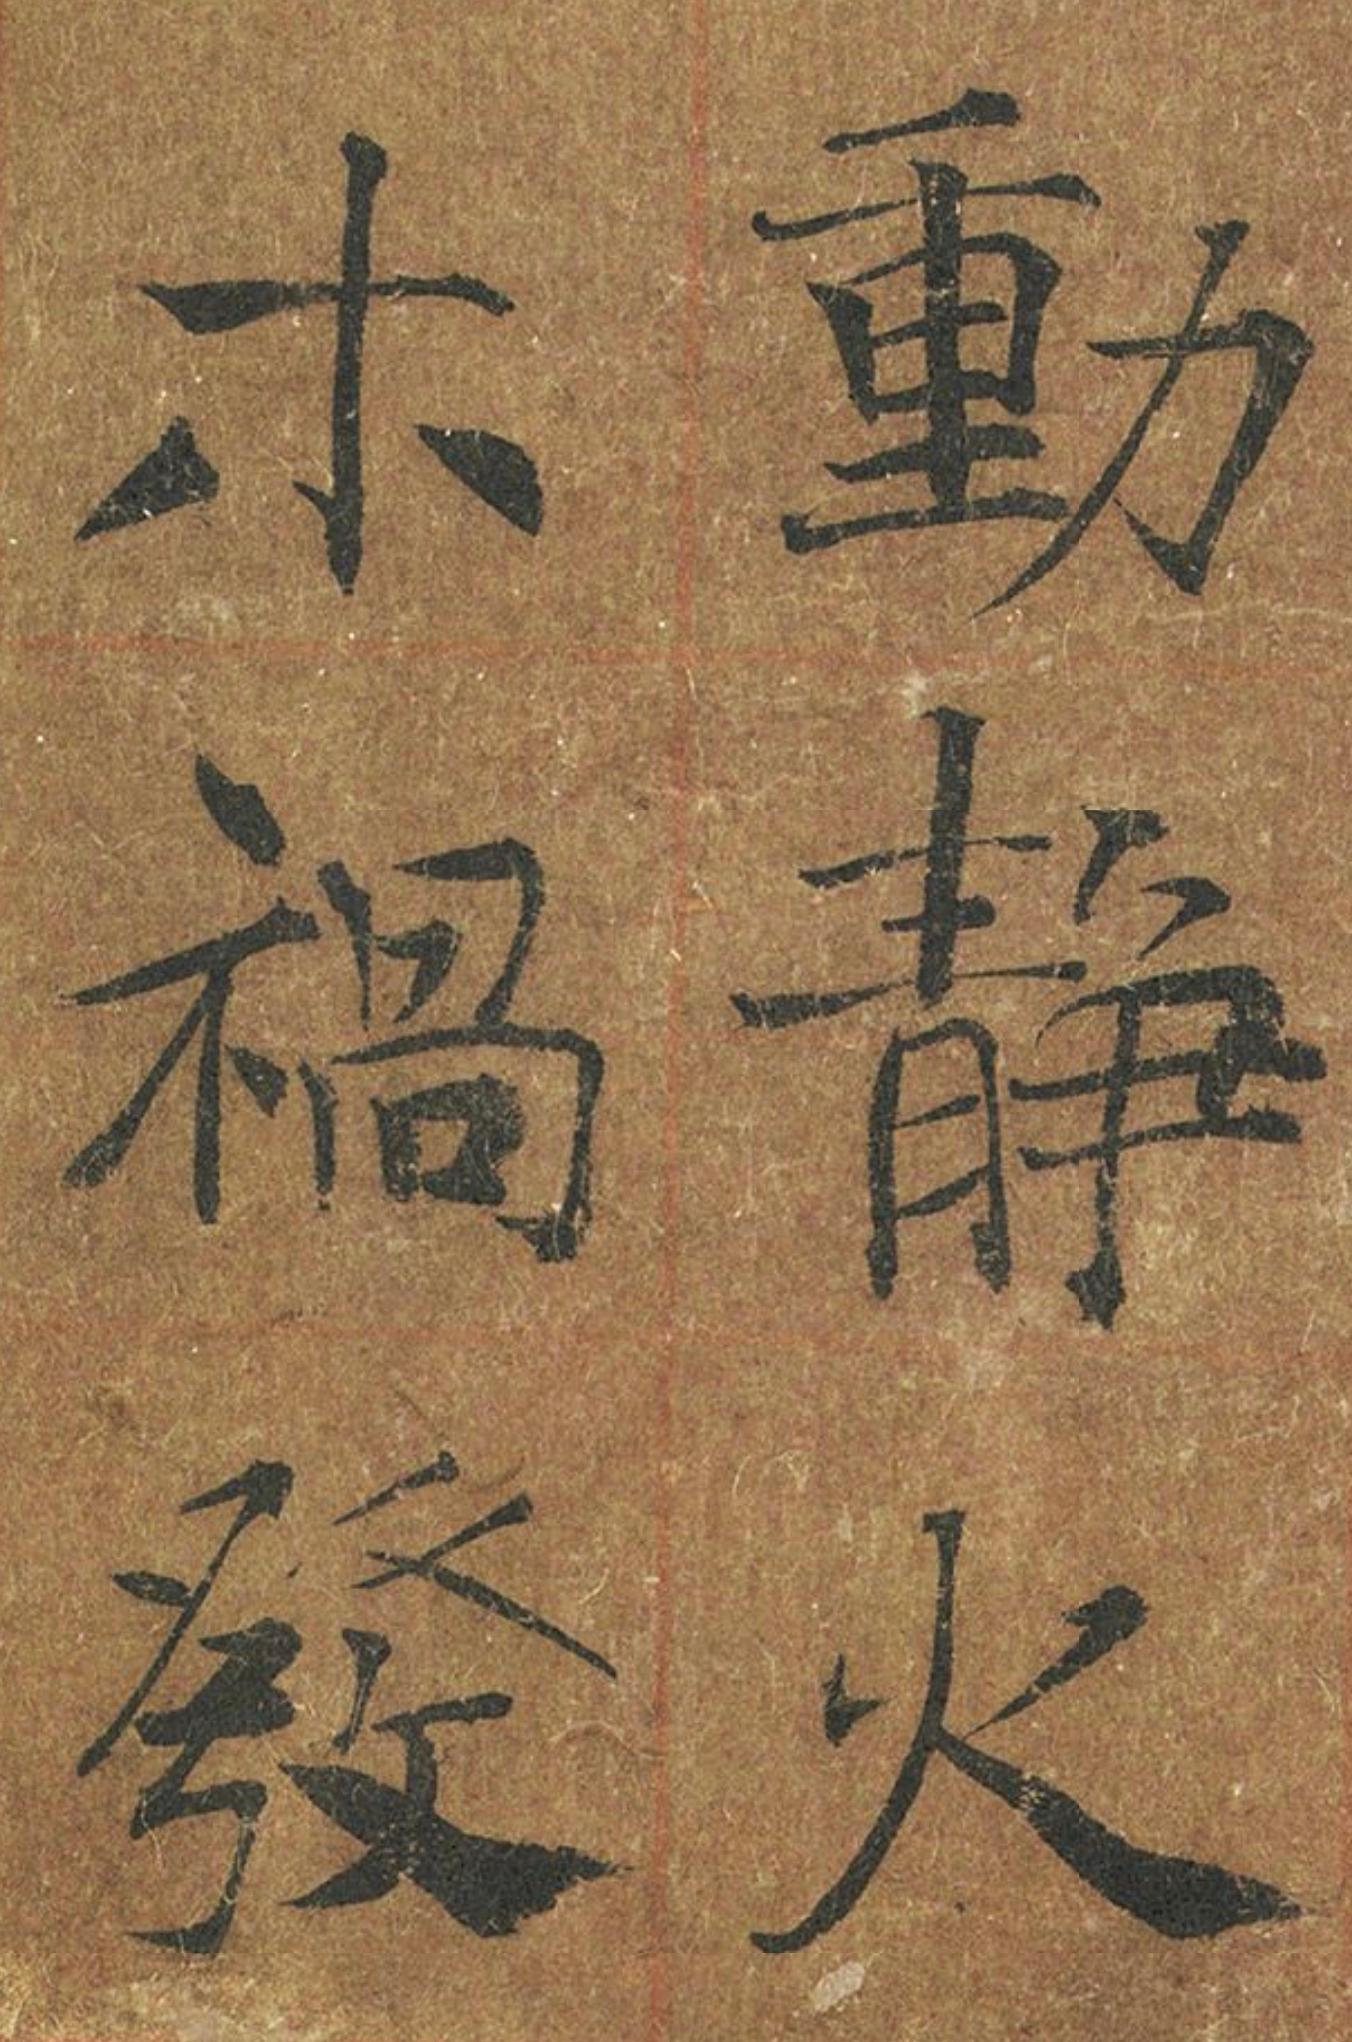 動靜火
木禍發